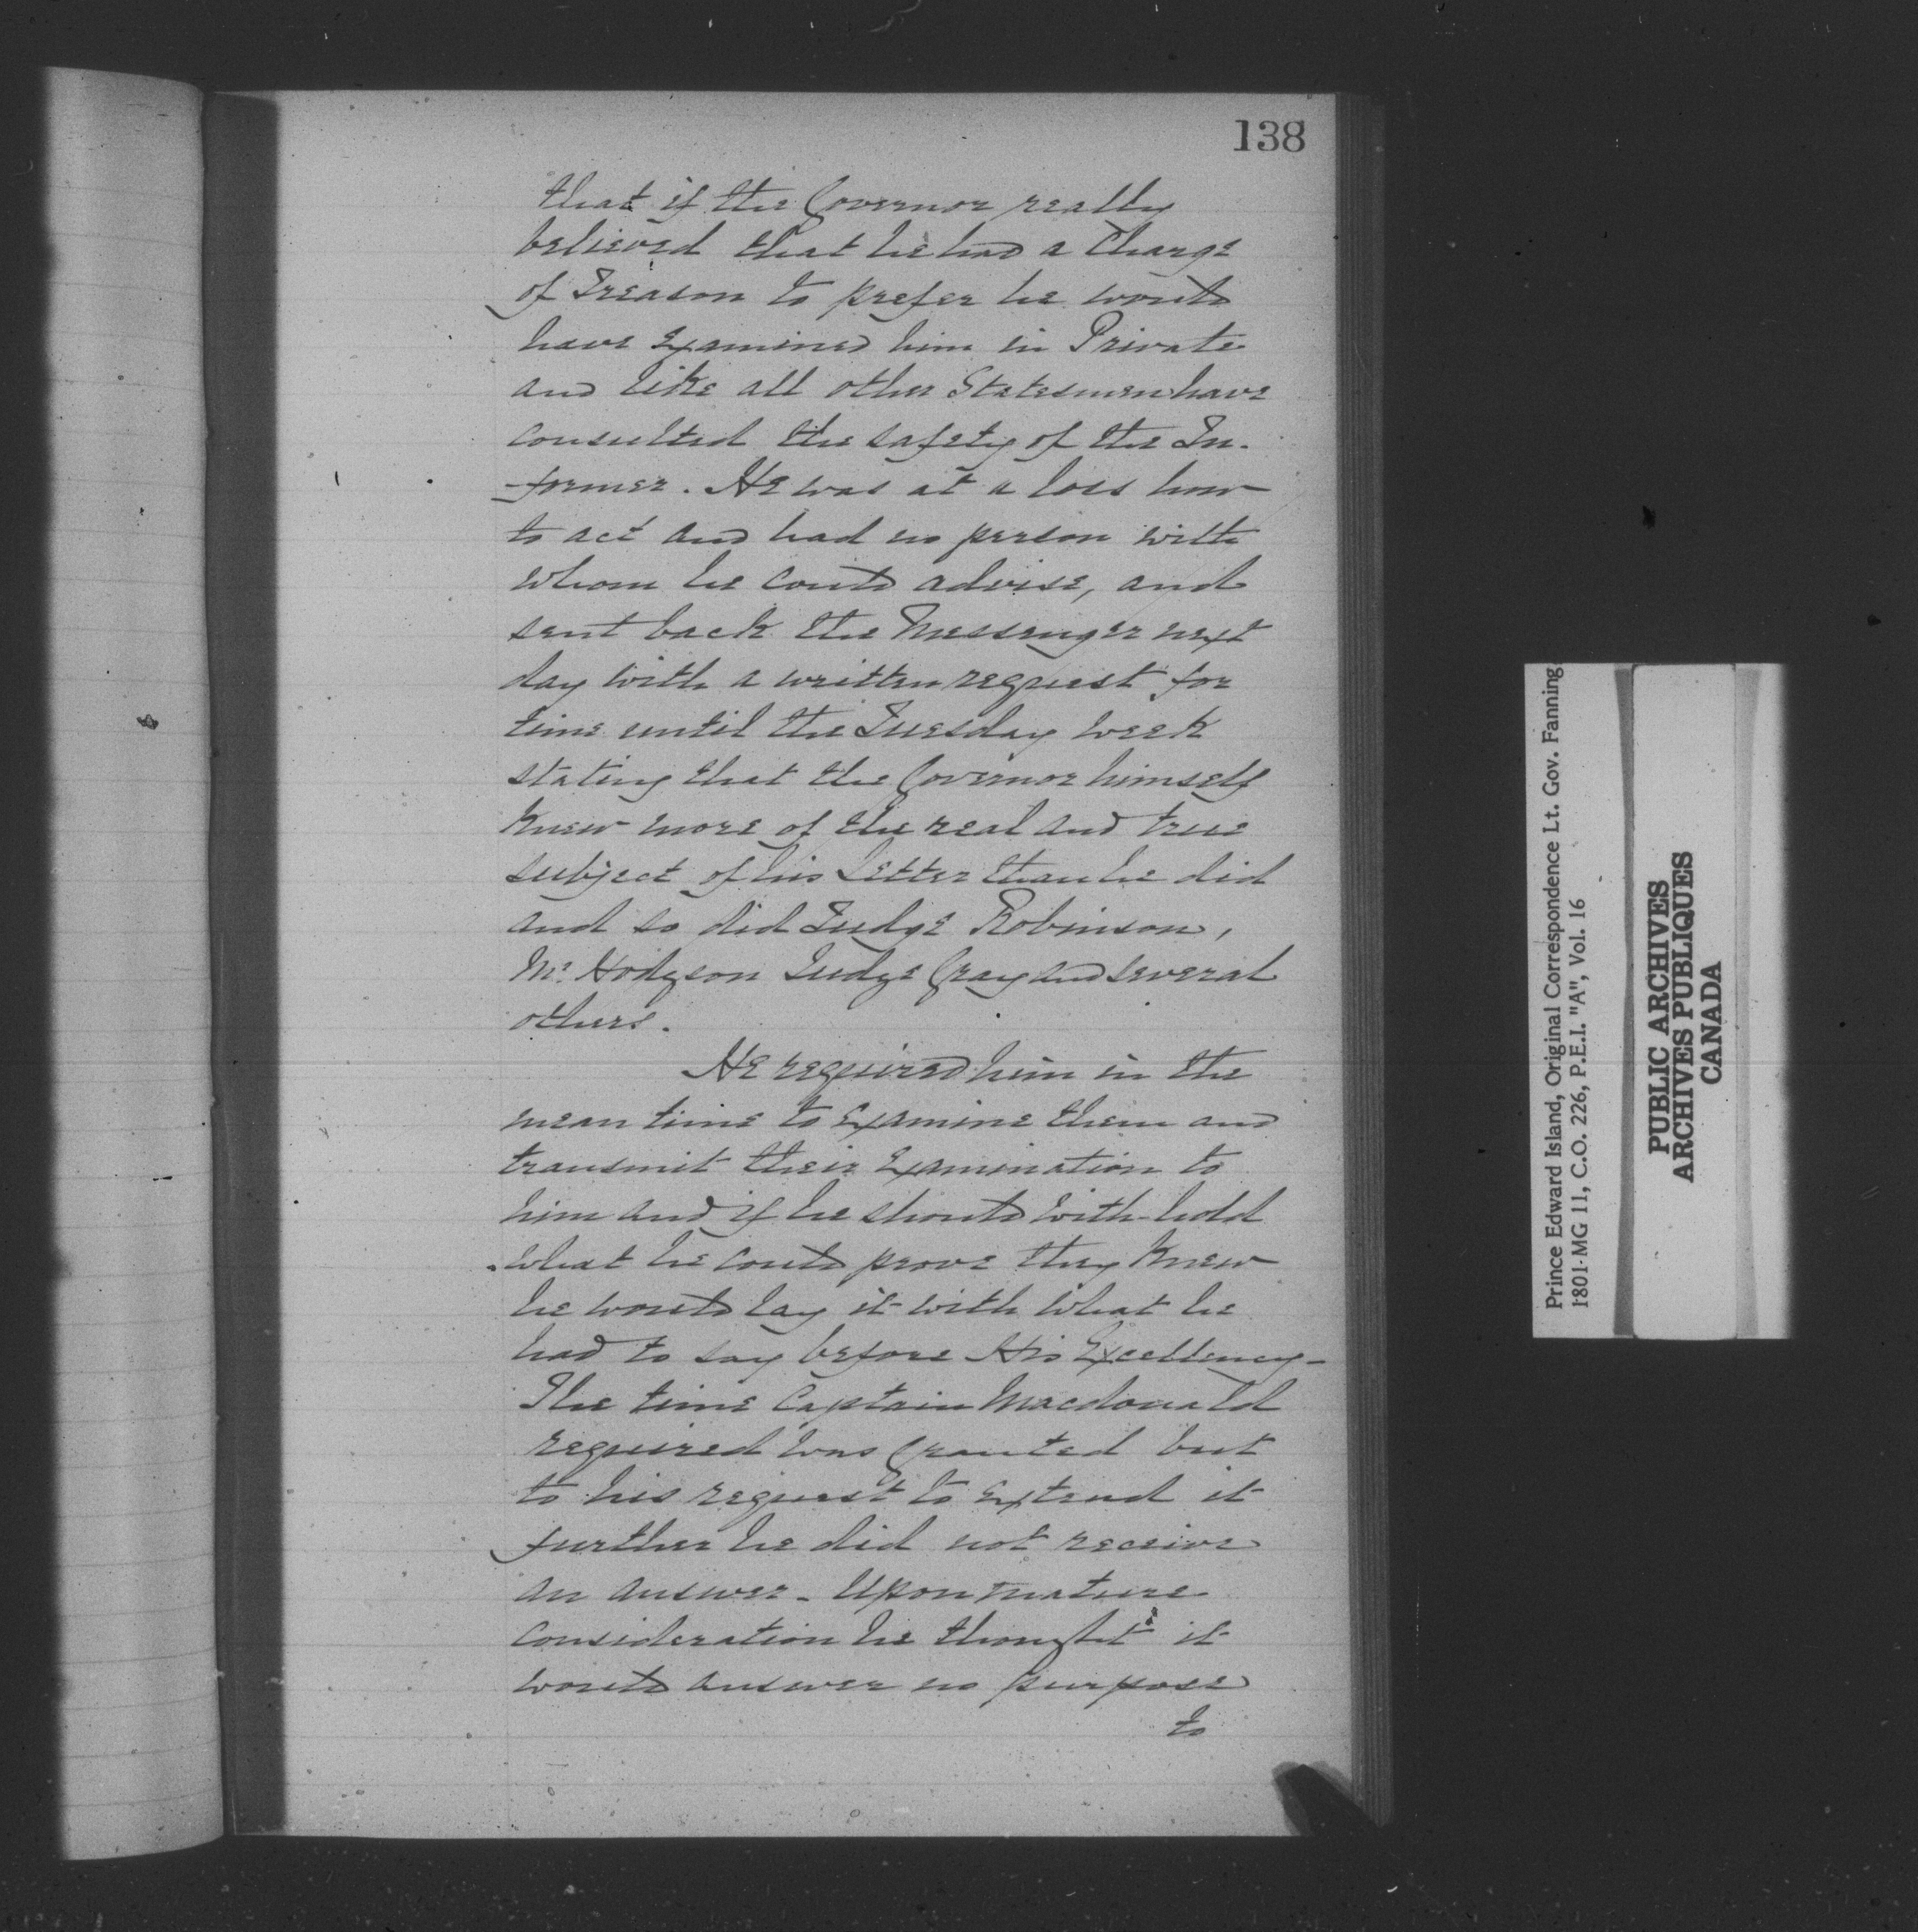 138
that if the Governor really
believed that he had a Charge
of Treason to prefer he would
have Examined him in Private
and like all other Statesmen have
consulted the safety of the In-
-former. He was at a loss how
to act and had no person with
whom he could advise, and
sent back the Messenger next
day with a written request for
time until the Tuesday week
stating that the Governor himself
knew more of the real and true
subject of his Letter than he did
and so did Judge Robinson,
Mr. Hodgson Judge Gray and several
others.
He required him in the
mean time to Examine them and
transmit their Examination to
him and if he should with-hold
what he could prove they knew
he would lay it with what he
had to say before His Excellency-
The time Captain Macdonald
required was Granted but
to his request to Extend it
further he did not receive
an answer. Upon mature
consideration he thought it
would answer no purpose
to
Prince Edward Island, Original Correspondence Lt. Gov. Fanning
1801-MG 11, C.O. 226, P.E.I. "A", Vol. 16
PUBLIC ARCHIVES
ARCHIVES PUBLIQUES
CANADA